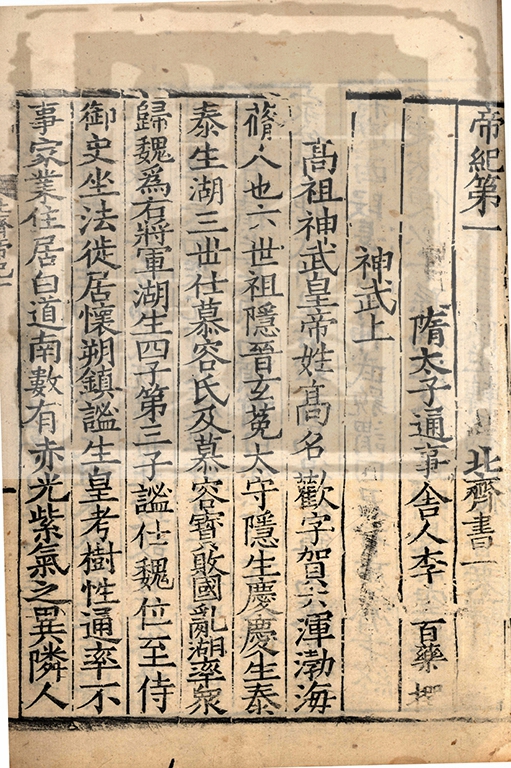 帝紀第一 北齊書一
隋太子通事舍人李 百藥 撰
神武上
高祖神武皇帝姓髙名歡字賀六渾渤海
蓨人也六世祖隱晉玄菟太守隱生慶慶生泰
泰生湖三世仕慕容氏及慕容寶敗國亂湖率衆
歸魏爲右將軍湖生四子第三子謐仕魏位至侍
御史坐法徙居懷朔鎮謐生皇考樹性通率不
事家業住居白道南數有赤光紫氣之異隣人